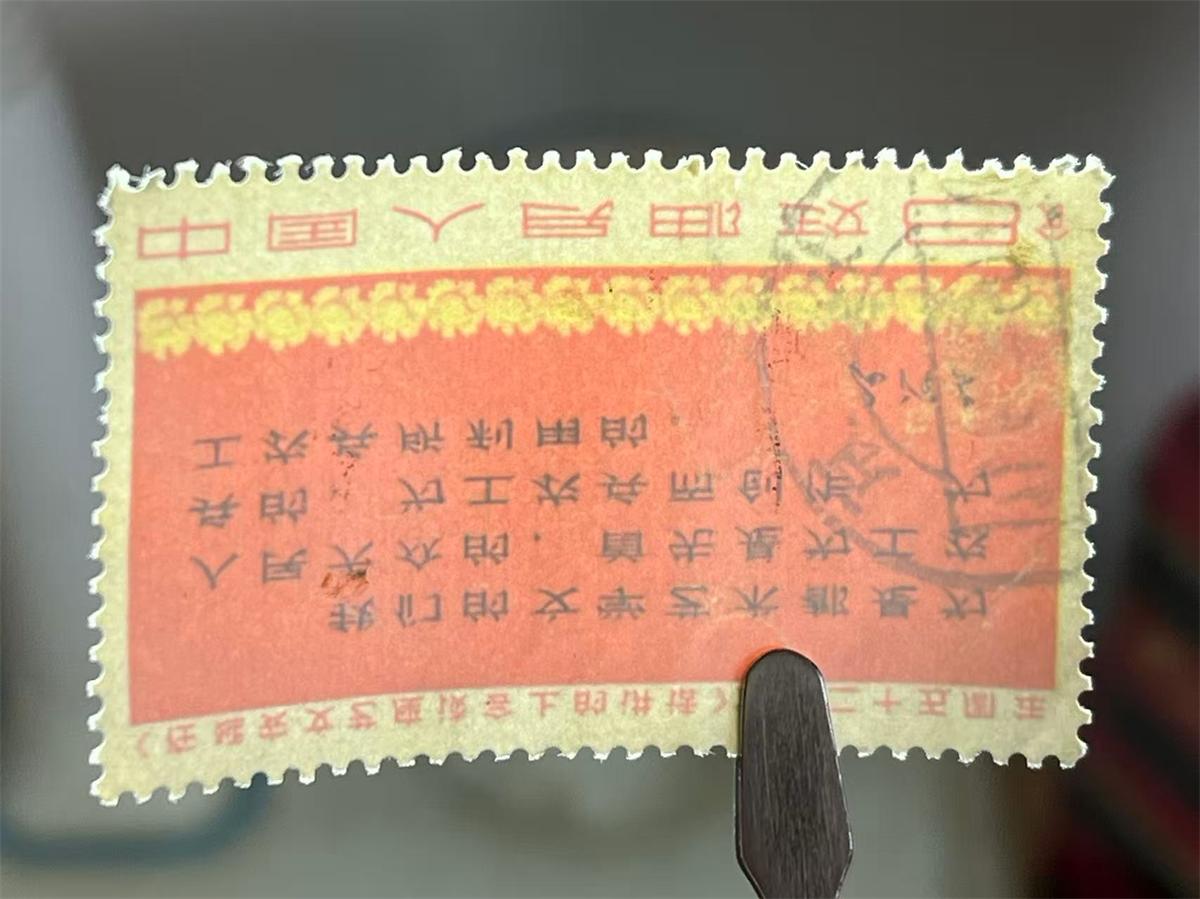 《在延安文艺座谈会上的讲话》二十五周年
我们的文学艺术都是为
人民大众的，首先是为工农
兵的，为工农兵而创作，为
工农兵所利用的。
毛泽东
中国人民邮政 8分